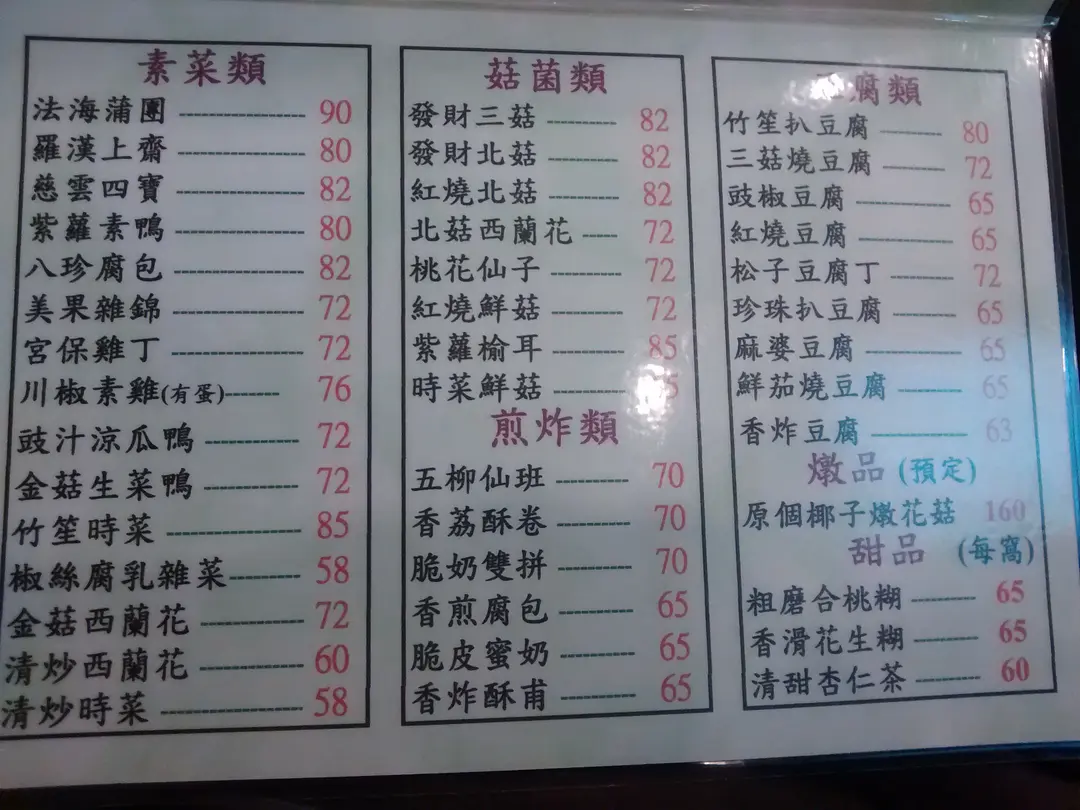 素菜類
法海蒲團 90
羅漢上齋 80
慈雲四寶 82
紫蘿素鴨 80
八珍腐包 82
美果雜錦 72
宮保雞丁 72
川椒素雞(有蛋) 76
豉汁涼瓜鴨 72
金菇生菜鴨 72
竹笙時菜 85
椒絲腐乳雜菜 58
金菇西蘭花 72
清炒西蘭花 60
清炒時菜 58
菇菌類
發財三菇 82
發財北菇 82
紅燒北菇 82
北菇西蘭花 72
桃花仙子 72
紅燒鮮菇 72
紫蘿榆耳 85
時菜鮮菇
煎炸類
五柳仙班 70
香荔酥卷 70
脆奶雙拼 70
香煎腐包 65
脆皮蜜奶 65
香炸酥甫 65
腐類
竹笙扒豆腐 80
三菇燒豆腐 72
豉椒豆腐 65
紅燒豆腐 65
松子豆腐丁 72
珍珠扒豆腐 65
麻婆豆腐 65
鮮茄燒豆腐 65
香炸豆腐 63
燉品 (預定)
原個椰子燉花菇 160
甜品 (每窩)
粗磨合桃糊 65
香滑花生糊 65
清甜杏仁茶 60